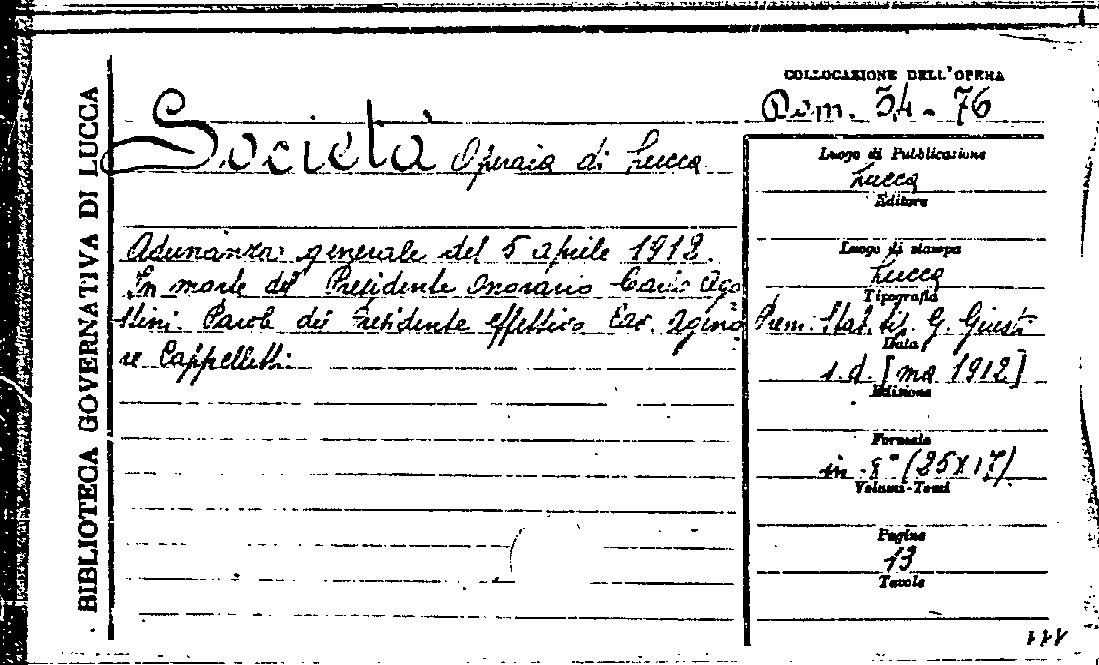 BIBLIOTECA GOVERNATIVA DI LUCCA
COLLOCAZIONE DELL'OPERA
Dom. 34-76
Società Operaia di Lucca
Adunanza generale del 5 aprile 1912.
In morte del Presidente Onorario Carlo Ago
stini. Parole del Presidente effettivo Cav. Ageno
re Cappelletti.
Luogo di Pubblicazione
Lucca
Editore
Luogo di stampa
Lucca
Tipografia
Prem. Stab. tip. G. Giusti
Data
s.d. [ma 1912]
Edizione
Formato
in-8° (25x17)
Volumi-Tomi
Pagine
13
Tavole